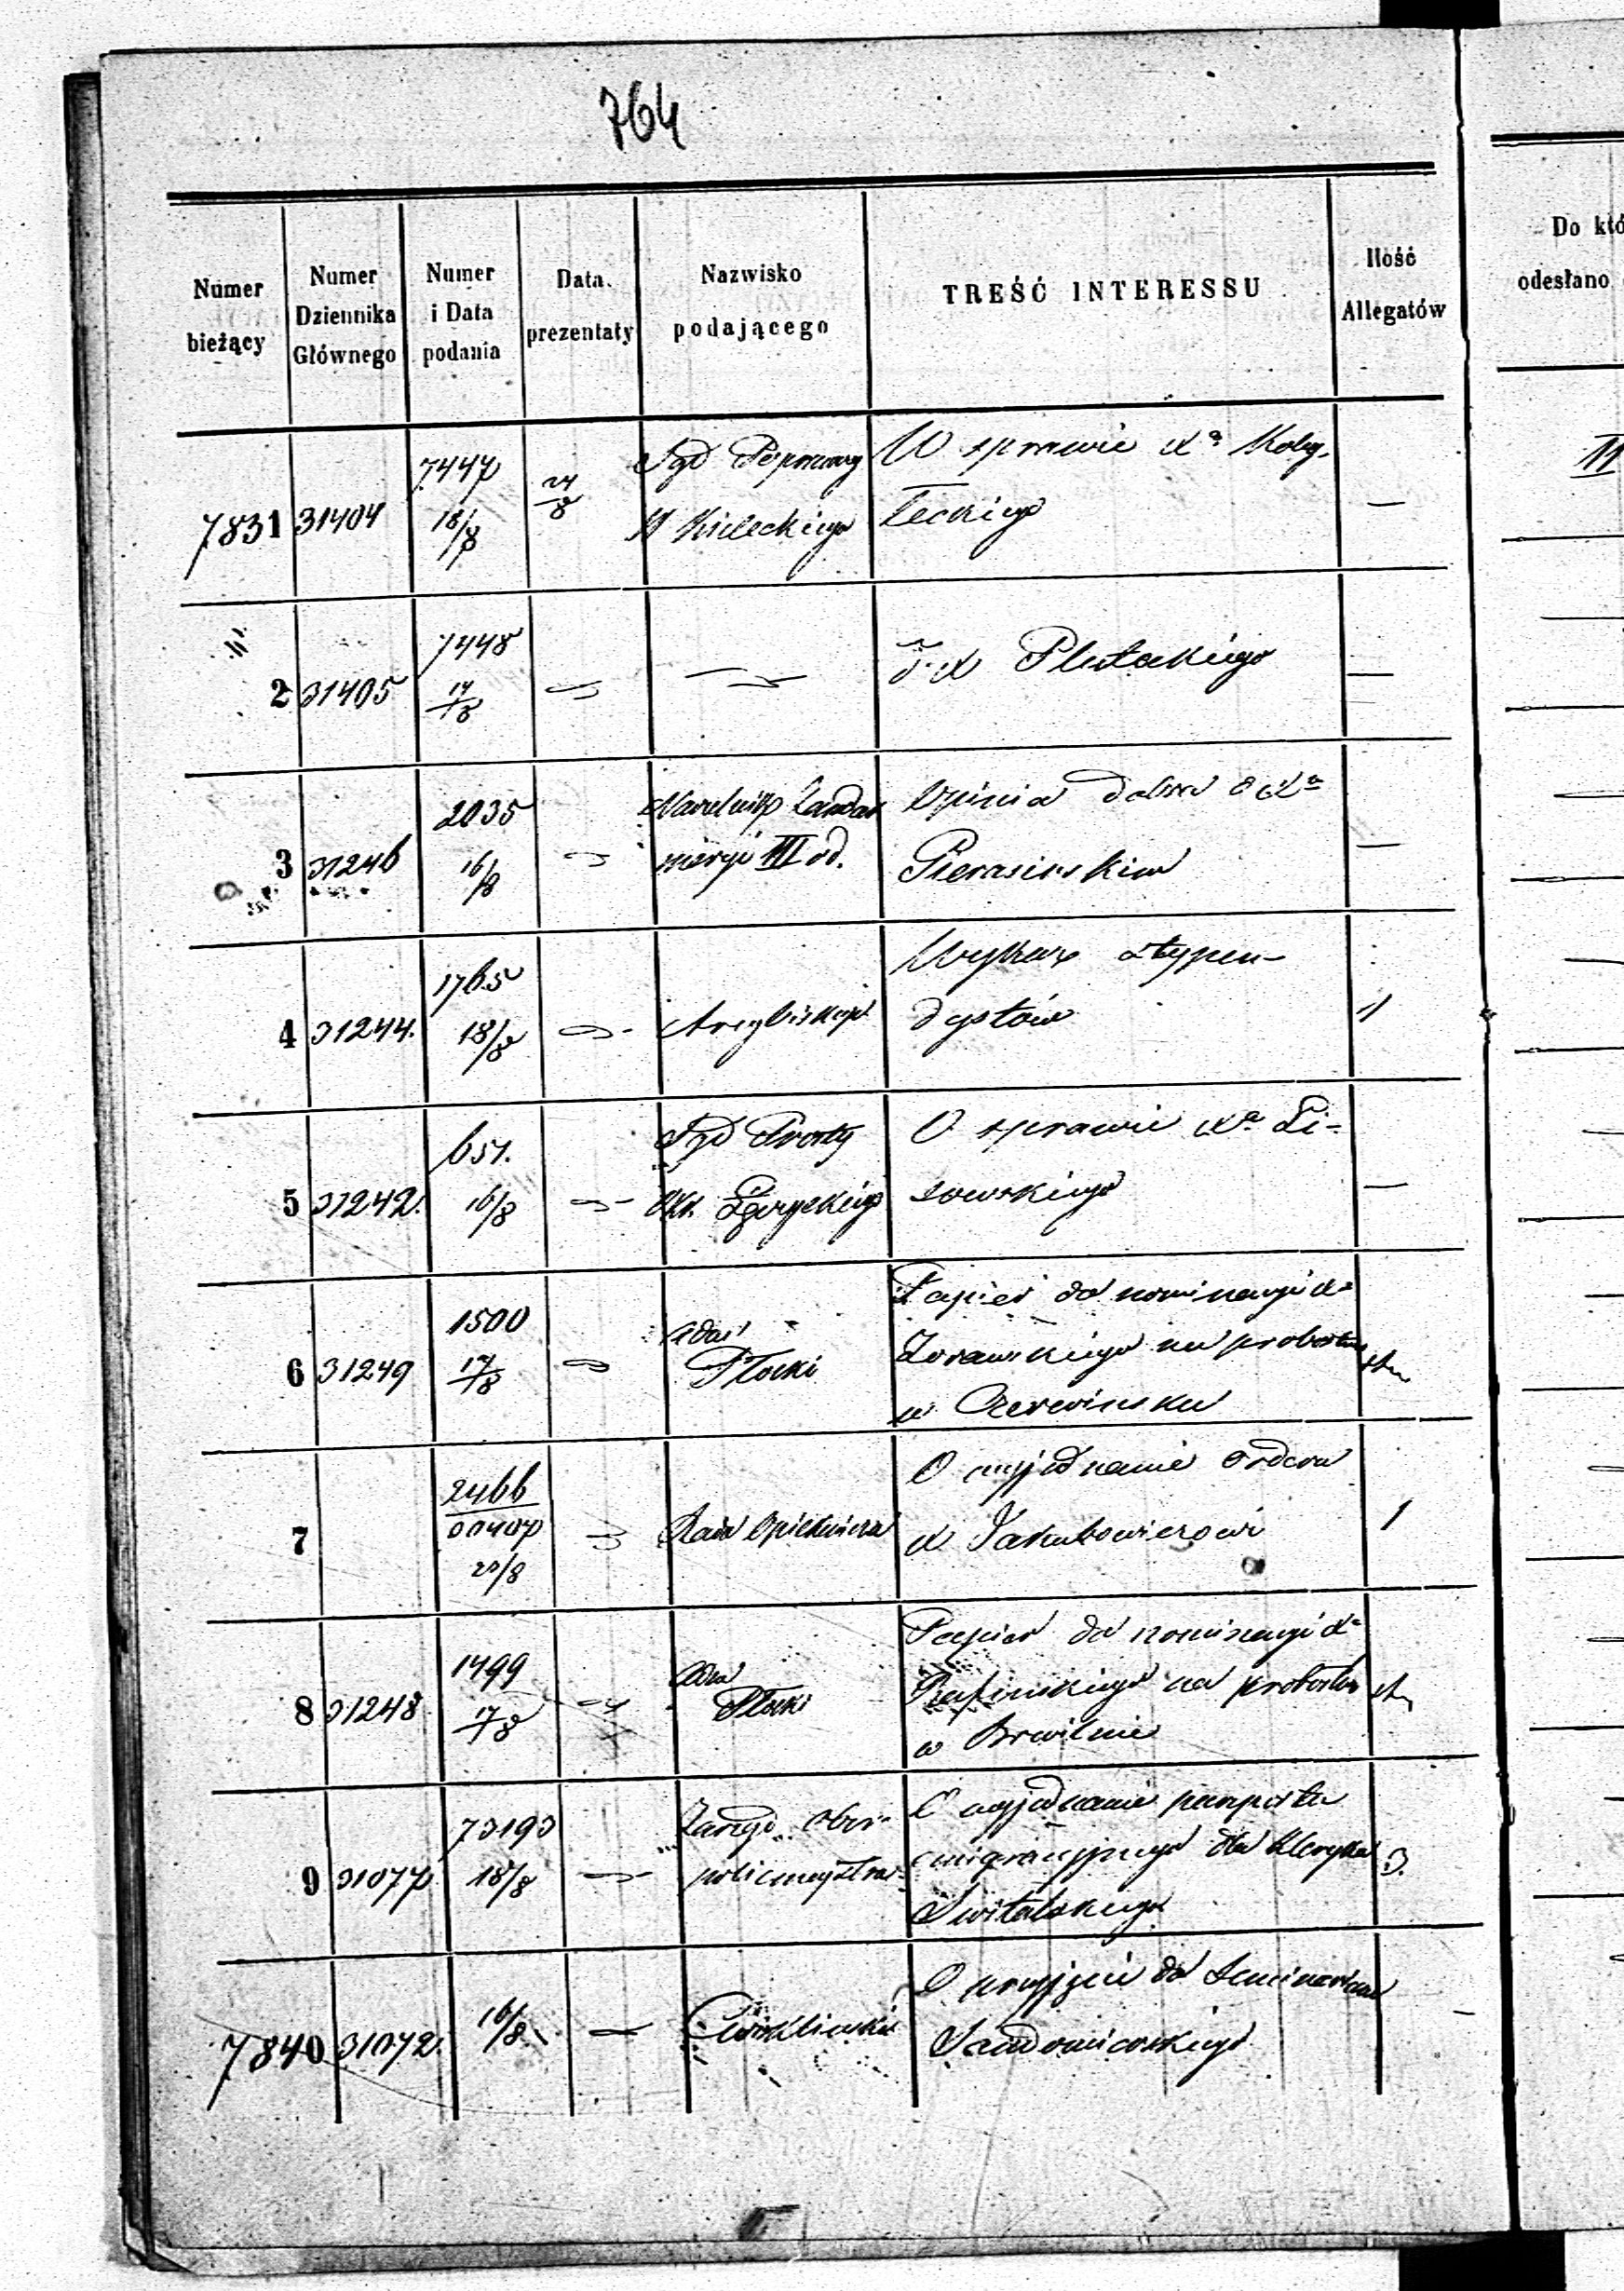 764
Numer bieżący
Numer Dziennika Głównego
Numer i Data podania
Data prezentaty
Nazwisko podającego
TREŚĆ INTERESSU
Ilość Allegatów
Do któ
odesłano
7831 31404 7447 18/8 24/8 Sąd Poprawczy W Kieleckiego W sprawie Xa Koby-
łeckiego —
11
2 31405 7448 17/8 — — d. X Pluteckiego —
3 31246 2035 16/8 — Naczelnik Żandar
meryi III od. Opinia dobra o Xa
Pierasinskim —
4 31244. 1765 18/8 — Arcybiskup Wykaz stypen-
dystów 1
5 31242. 651. 16/8 — Sąd Prosty
Okr. Zgierskiego O sprawie Xa Li-
sowskiego —
6 31249 1500 17/8 — Adm
Płocki Papier do nominacyi Xa
Żorawskiego na probostwo
w Czerwinsku
7 2466 20/8 — Rada Opiekuńcza O wyjednanie ordera
X Jakubowiczowi 1
8 31248 1499 17/8 — Adm
Płocki Papier do nominacyi Xa
na probostwo
w Brwilnie
9 31077 73193 18/8 — Zarząd Ober-
policmajstra O wyjednanie paszportu
emigracyjnego dla Kleryka
Switalskiego 3.
7840 31072. 16/8 — Cwiklinski O przyjęcie do Seminarium
Sandomierskiego —